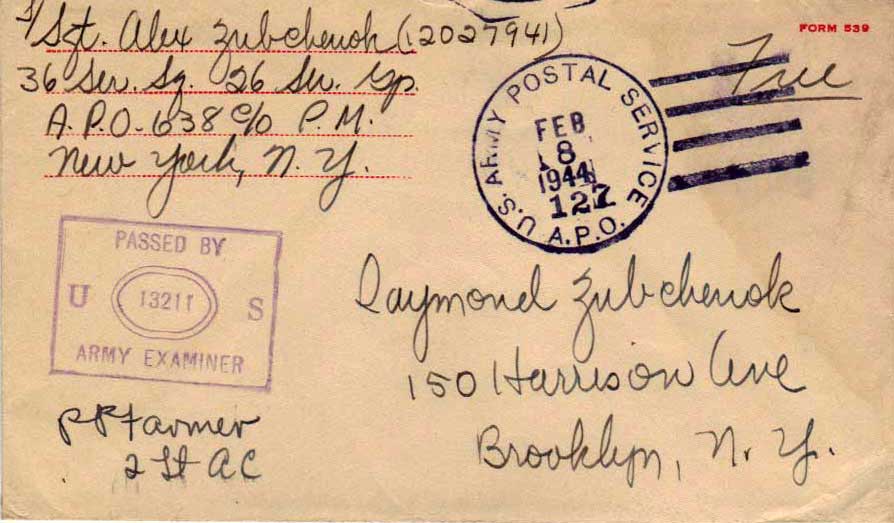 S/Sgt. Alex Zubchenok (12027941)
36 Ser. Sq. 26 Ser. Gp.
A.P.O. 638 c/o P.M.
New York, N.Y.
FORM 539
Free
U.S. ARMY POSTAL SERVICE
FEB
8
1944
127
A.P.O.
PASSED BY
U 13211 S
ARMY EXAMINER
Raymond Zubchenok
150 Harrison Ave
Brooklyn, N.Y.
P P Farmer
2 Lt AC